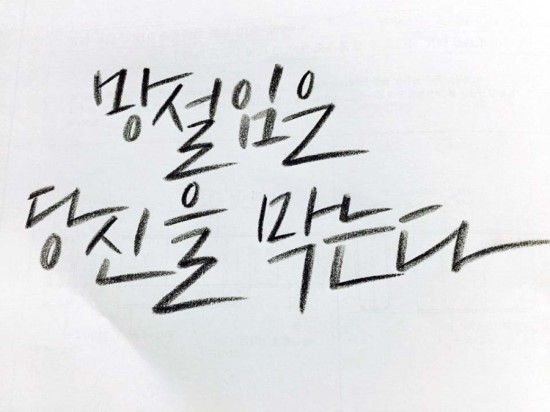 망설임은
당신을 막는다